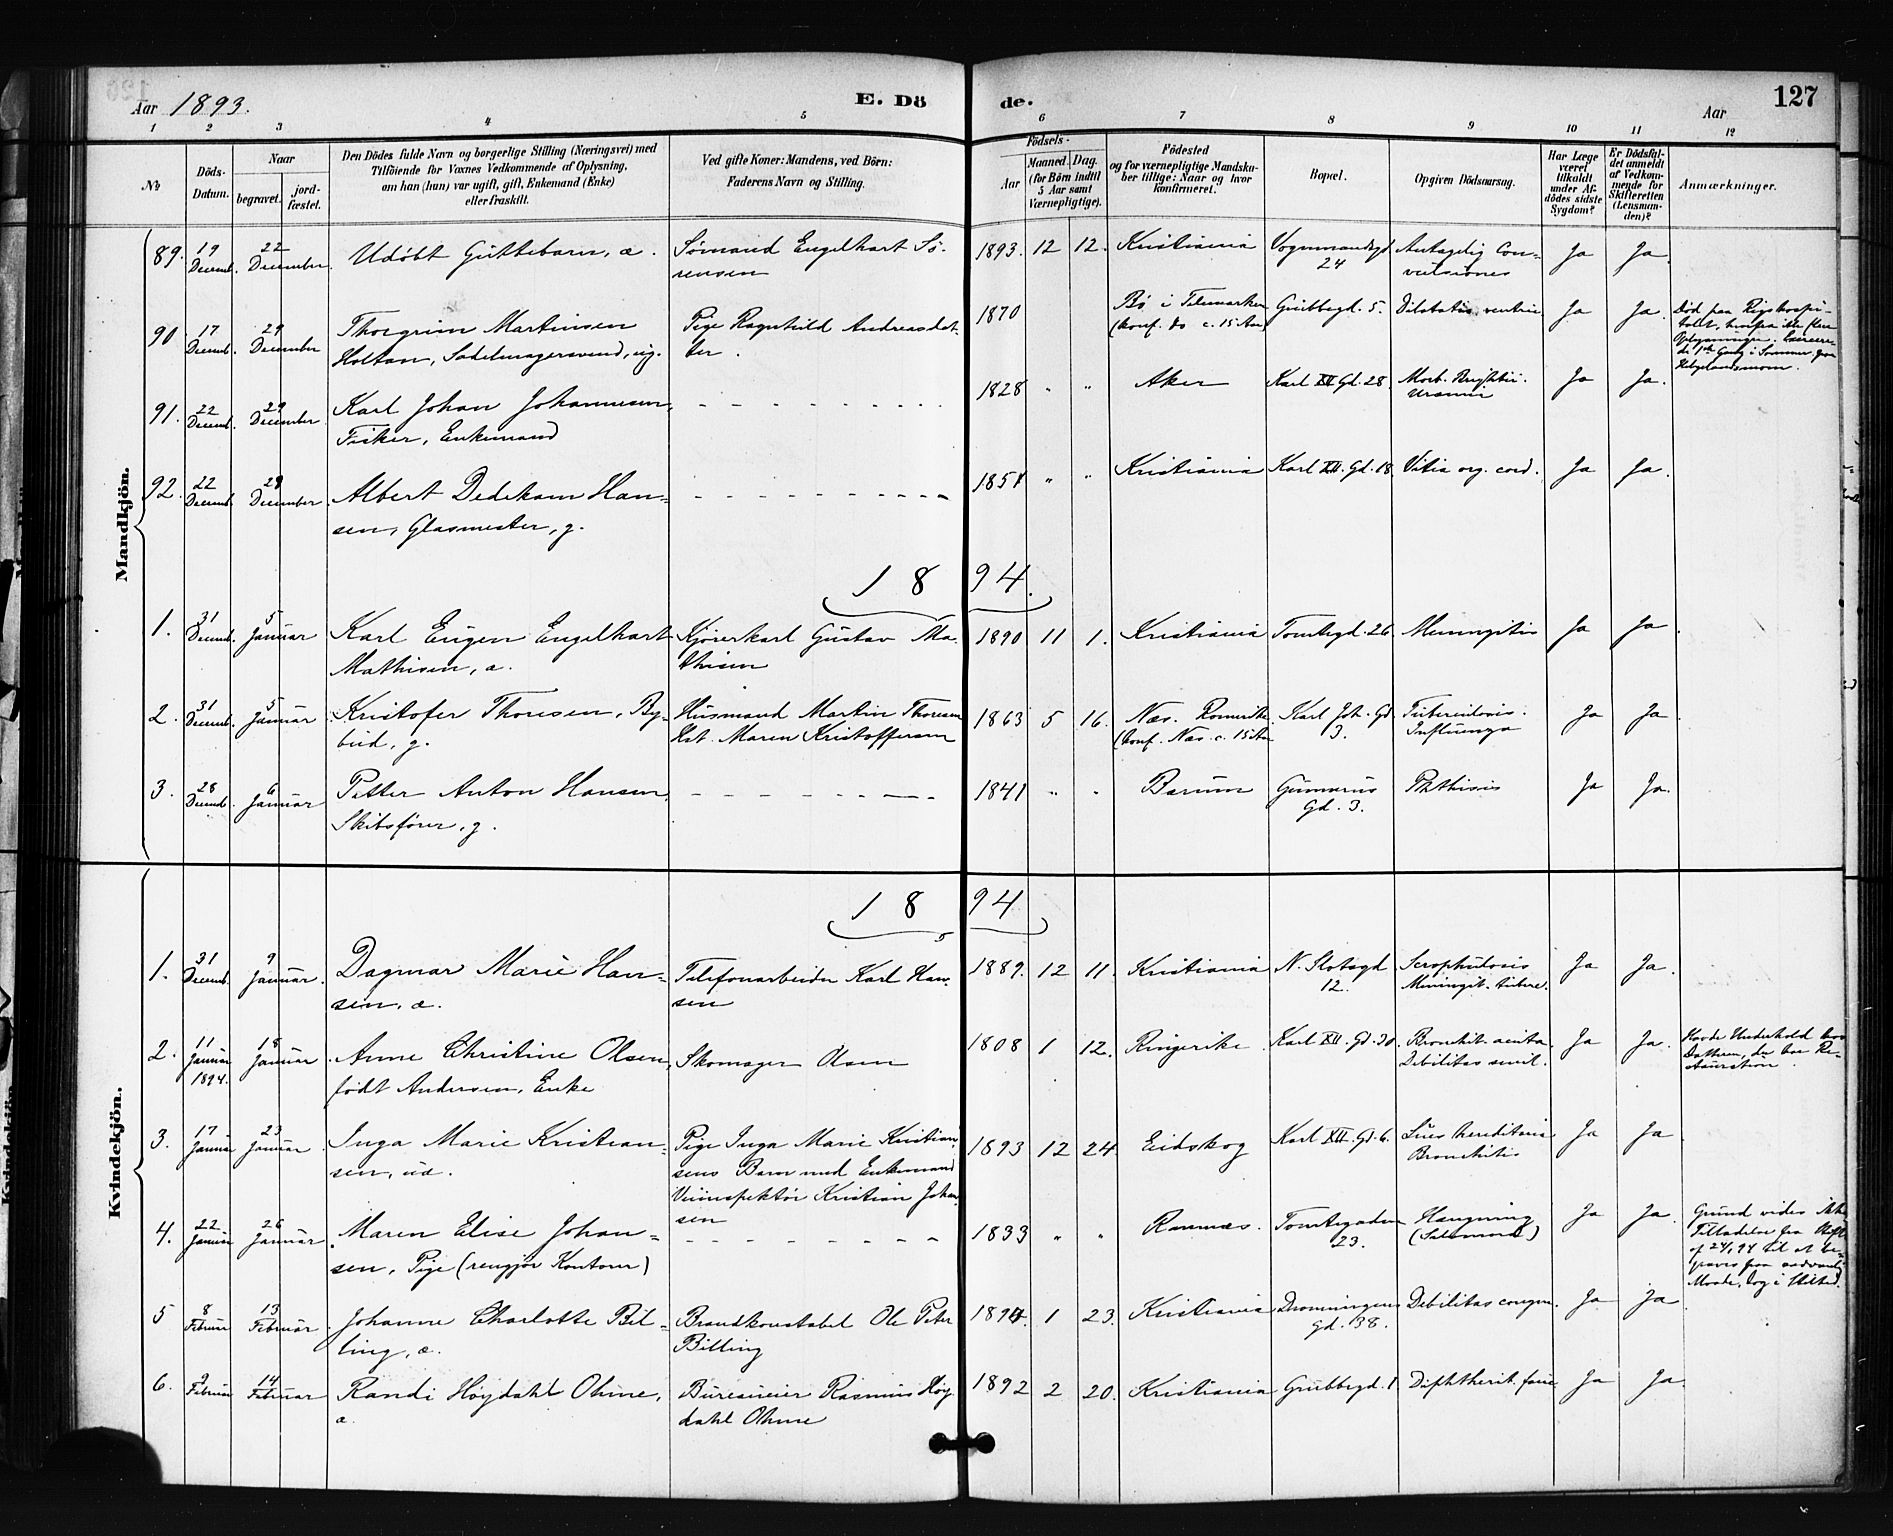 Aar 1893.
E. Dö
de.
Aar
127
1 2 3 4 5 6 7 8 9 10 11 12
No
Döds-Datum.
Naar begravet. jordfæstet.
Den Dödes fulde Navn og borgerlige Stilling (Næringsvei) med
Tilföiende for Voxnes Vedkommende af Oplysning,
om han (hun) var ugift, gift, Enkemand (Enke)
eller fraskilt.
Ved gifte Koner: Mandens, ved Börn:
Faderens Navn og Stilling.
Födsels-
Aar
Maaned. Dag.
(for Börn indtil
5 Aar samt
Værnepligtige).
Födested
og for værnepligtige Mandskaber tillige: Naar og hvor
konfirmeret.
Bopæl.
Opgiven Dödsaarsag.
Har Læge
været
tilkaldt
under Afdödes sidste
Sygdom?
Er Dödsfaldet anmeldt
af Vedkommende for
Skifteretten
(Lensmanden)?
Anmærkninger.
Mandkjön.
89. 19 Decemb. 22 December Udøbt Guttebarn, æ. Sømand Engelhart Sørensen 1893. 12 12. Kristiania Vognmandsgd 24 Antagelig Convulsiones Ja Ja.
90 17 Decemb. 29 December Thorgrim Martinsen
Holtan, Sadelmagersvend, ug. Pige Ragnhild Andreasdatter. 1870 Bø i Telemarken
(konf. do c. 15 Aar Grubbegd. 5. Dilatatio ventric Ja Ja. Død paa Rigshospitalet, hvorfra ikke flere
Oplysninger.
91. 22 Decemb. 29 December Karl Johan Johannesen,
Fisker, Enkemand 1828 " " Aker Karl XII Gd. 28 Morb. Brightii.
Uræmia Ja Ja.
92. 22 Decemb. 29 December Albert Dedekam Hansen, Glasmester, g. 1851 " " Kristiania Karl XII. Gd. 18 Vitia org. cord. Ja Ja.
1894.
1. 31 Decemb. 5 Januar Karl Eugen Engelhart
Mathisen, æ. Kjørerkarl Gustav Mathisen 1890 11 1. Kristiania Tomtegd. 26 Meningitis Ja Ja.
2. 31 Decemb. 5 Januar Kristofer Thoresen, Bybud, g. Husmand Martin Thoresen
Hst. Maren Kristoffersen 1863 5 16. Næs. Romerike
(konf. Næs. c. 15 Aar Karl Joh. Gd 3. Tuberculosis.
Influenza Ja Ja
3. 28 Decemb. 6 Januar Petter Anton Hansen,
Skibsfører, g. 1841 " " Bærum Gunnerus Gd. 3. Phthisis Ja Ja.
Kvindekjön.
1894
1. 31 Decemb. 9 Januar. Dagmar Marie Hansen, æ. Telefonarbeider Karl Hansen 1889. 12 11. Kristiania N. Slotsgd 12. Scrophulosis
Meningit. tuberc. Ja Ja.
2. 11 Januar 1894. 18 Januar Anne Christine Olsen,
født Andersen, Enke Skomager Olsen 1808 1 12. Ringerike Karl XII. Gd. 30 Bronchit. acuta
Debilitas senil. Ja Ja. Havde Underhold hos
Datteren, der har Restauration.
3. 17 Januar 23 Januar Inga Marie Kristiansen, uæ. Pige Inga Marie Kristiansens Barn med Enkemand
Kristian Johansen 1893 12 24. Eidskog Karl XII. Gd. 6. Lues hereditaria
Bronchitis Ja Ja
4. 22 Januar 26 Januar Maren Elise Johansen, Pige (rengjør Kontorer) 1833 " " Ramnæs. Tomtegaden 23. Hængning
(Selvmord) Ja Ja. Grund vides ikke
Tilladelse fra Stift
af 24/1 94 til at begraves paa sædvanlig
Maade, dog i Stilhed.
5 8 Februar 13 Februar. Johanne Charlotte Billing, æ. Brandkonstabel Ole Peter
Billing 1894. 1 23. Kristiania Dronningens gd. 38. Debilitas congen. Ja Ja
6. 9 Februar 14 Februar Randi Høydahl Ohme,
æ Bureaueier Rasmus Høydahl Ohme 1892 2 20. Kristiania Grubbegd. 1 Diphtherit. fauc Ja Ja.